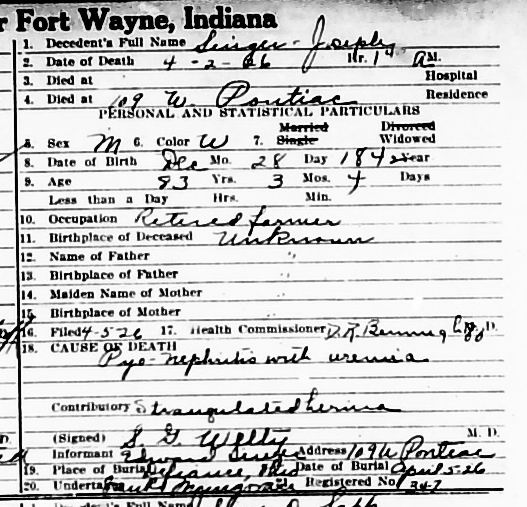 r Fort Wayne, Indiana
1. Decedent's Full Name Singer - Joseph
2. Date of Death 4 - 2 - 26 Hr. 1 AM.
3. Died at Hospital
4. Died at 109 W. Pontiac Residence
PERSONAL AND STATISTICAL PARTICULARS
5. Sex M 6. Color W 7. Married Single Divorced Widowed
8. Date of Birth Dec Mo. 28 Day 1842 Year
9. Age 83 Yrs. 3 Mos. 4 Days
Less than a Day Hrs. Min.
10. Occupation Retired farmer
11. Birthplace of Deceased Unknown
12. Name of Father "
13. Birthplace of Father
14. Maiden Name of Mother "
15. Birthplace of Mother
16. Filed 4-5-26 17. Health Commissioner D. R. M. D.
18. CAUSE OF DEATH
Pyo-nephritis with uremia
Contributory Strangulated hernia
(Signed) S. G. Welty M. D.
Informant Edward Singer Address 109 W Pontiac
19. Place of Burial Defiance, Ohio Date of Burial April 5-26
20. Undertaker Registered No. 347